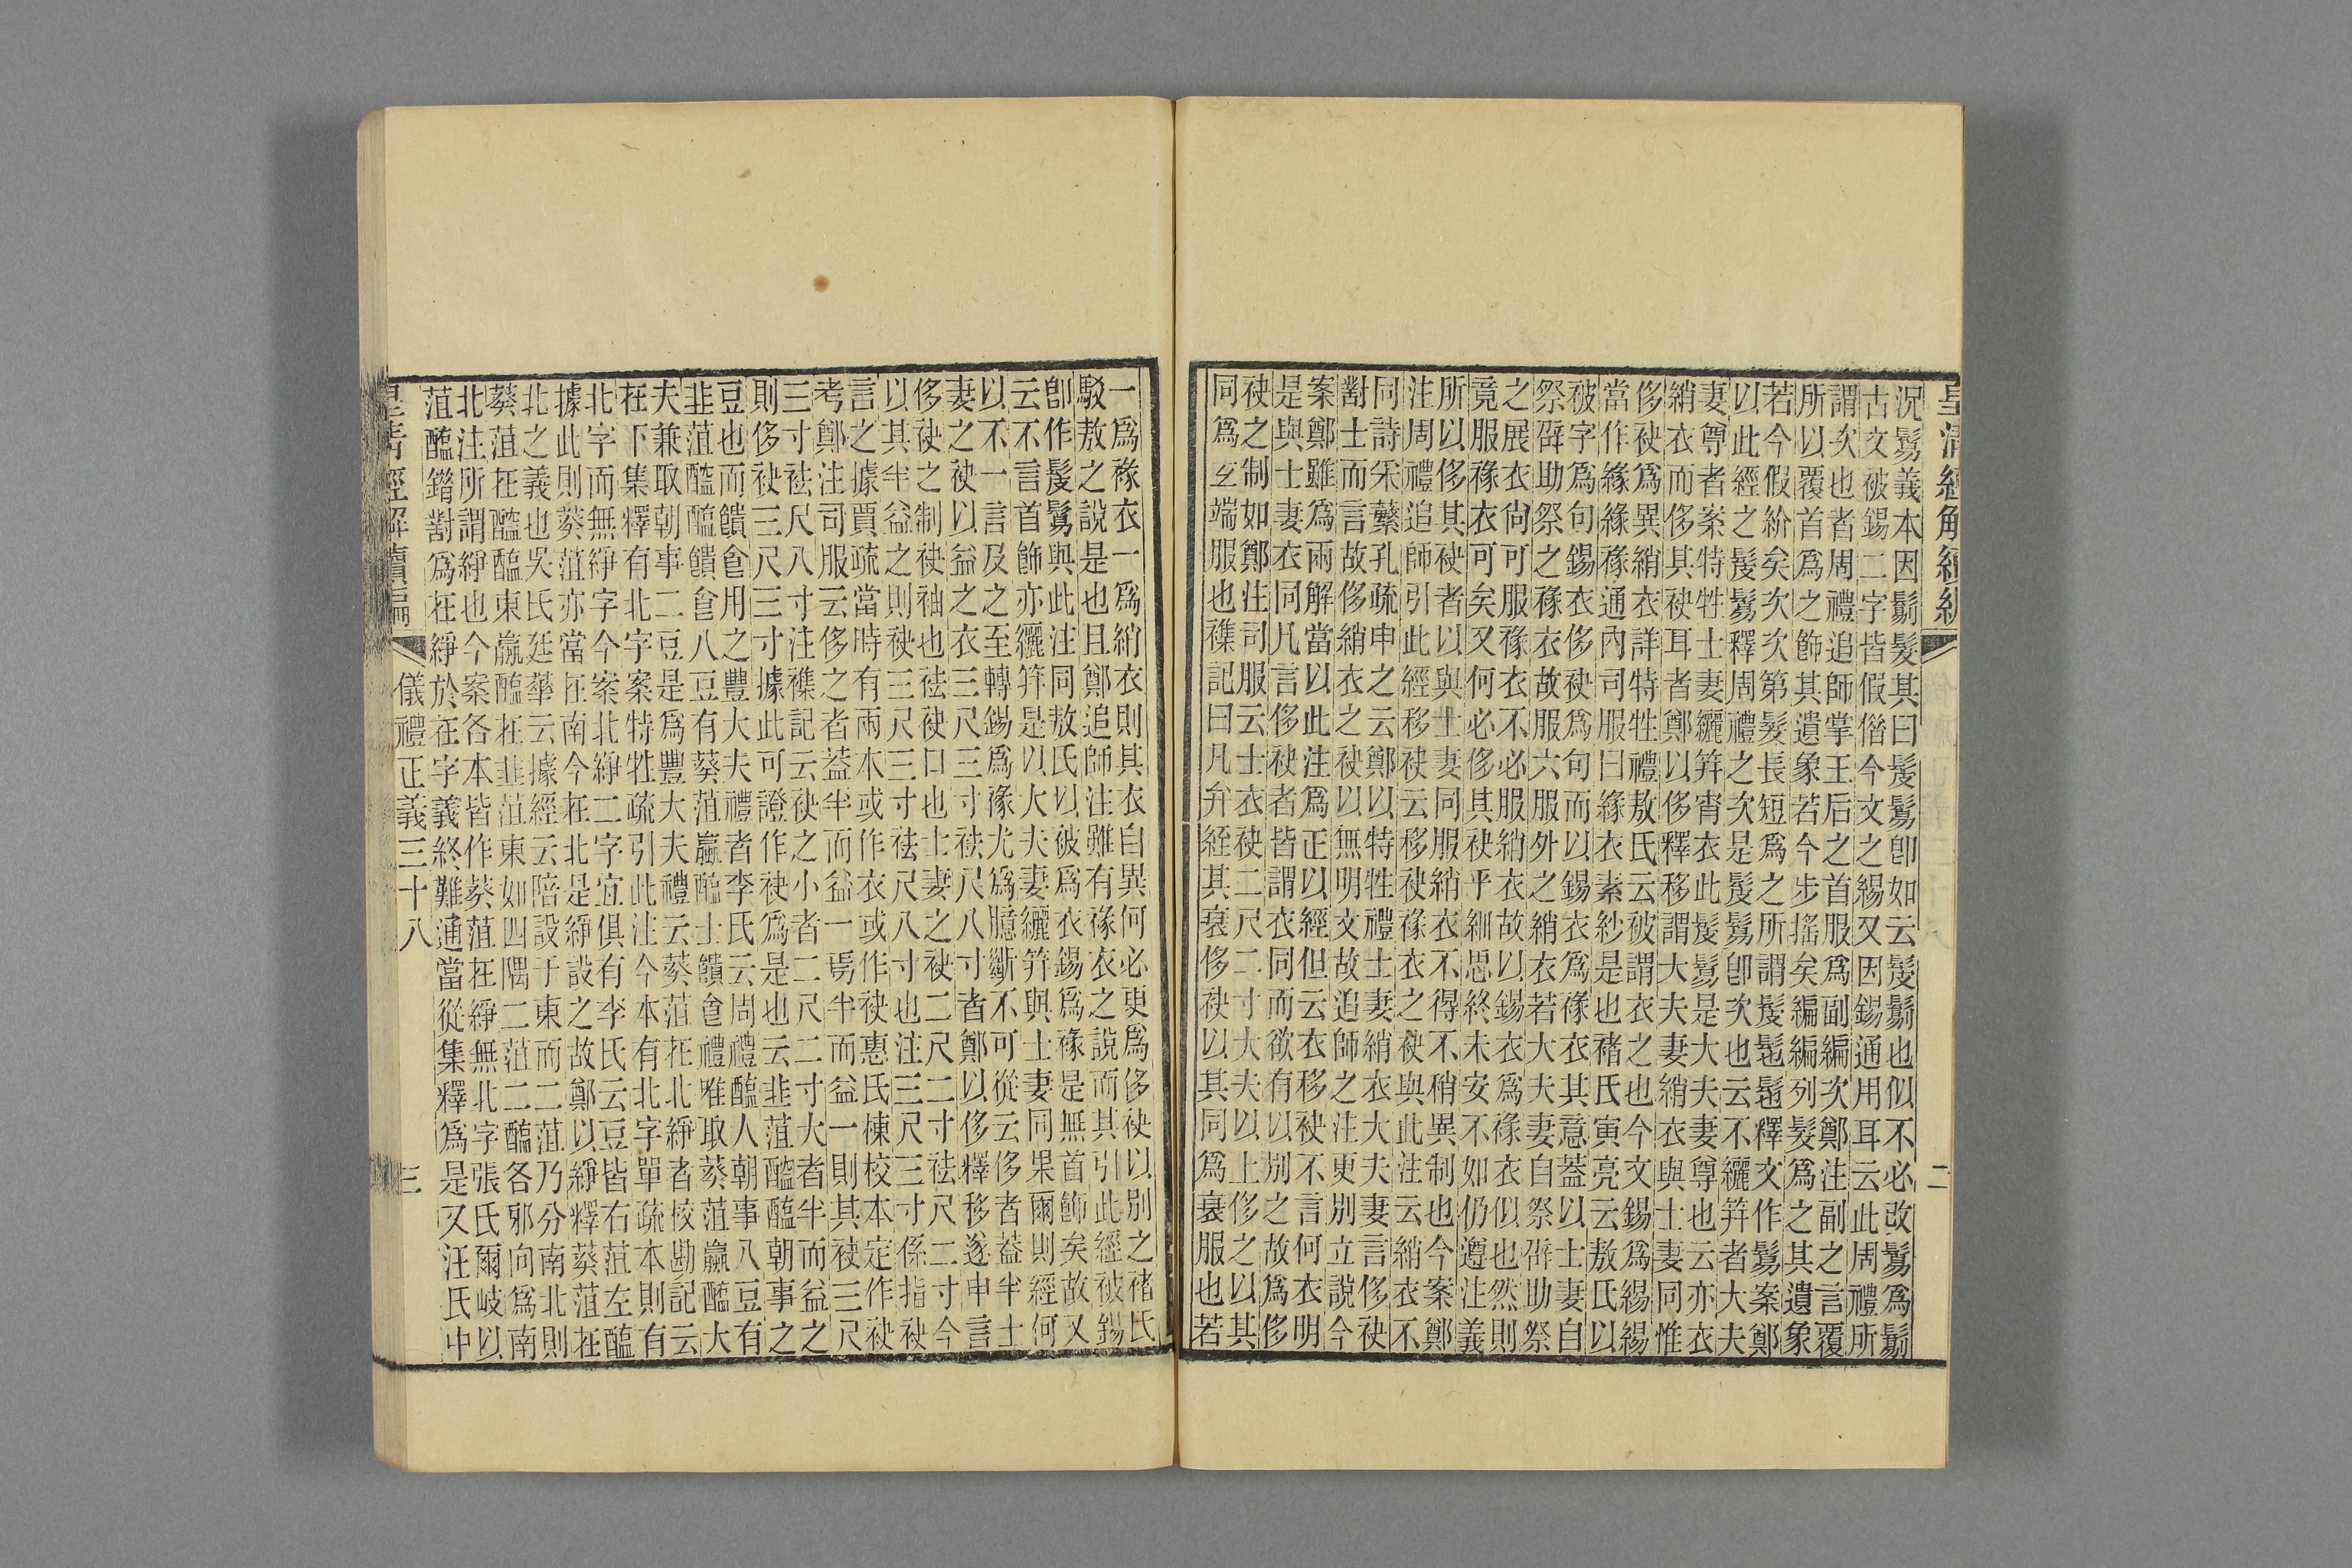 況鬄義本因鬄髮其曰髲鬄卽如云髲鬄也似不必改鬄爲鬄
古文被錫二字皆假僭今文之緆又因錫通用耳云此周禮所
謂次也者周禮追師掌王后之首服爲副編次鄭注副之言覆
所以覆首爲之飾其遺象若今步搖矣編編列髮爲之其遺象
若今假紒矣次次第髮長短爲之所謂髲髢髢釋文作鬄案鄭
以此經之髲鬄釋周禮之次是髲鬄卽次也云不纚笄者大夫
妻尊者案特牲士妻纚笄宵衣此髲鬄是大夫妻尊也云亦衣
綃衣而侈其袂耳者鄭以侈釋移謂大夫妻綃衣與士妻同惟
侈袂爲異綃衣詳特牲禮敖氏云被謂衣之也今文錫爲緆緆
當作緣緣褖通內司服曰緣衣素紗是也褚氏寅亮云敖氏以
被字爲句錫衣侈袂爲句而以錫衣爲褖衣其意蓋以士妻自
祭辟助祭之褖衣故服六服外之綃衣若大夫妻自祭辟助祭
之展衣尙可服褖衣不必服綃衣故以錫衣爲褖衣似也然則
竟服褖衣可矣又何必侈其袂乎細思終未安不如仍遵注義
所以侈其袂者以與士妻同服綃衣不得不稍異制也今案鄭
注周禮追師引此經移袂云移袂褖衣之袂與此注云綃衣不
同詩采蘩孔疏申之云鄭以特牲禮士妻綃衣大夫妻言侈袂
對士而言故侈綃衣之袂以無明文故追師之注更別立說今
案鄭雖爲兩解當以此注爲正以經但云衣移袂不言何衣明
是與士妻衣同凡言侈袂者皆謂衣同而欲有以別之故爲侈
袂之制如鄭注司服云士衣袂二尺二寸大夫以上侈之以其
同爲玄端服也襍記曰凡弁絰其衰侈袂以其同爲衰服也若
一爲褖衣一爲綃衣則其衣自異何必更爲侈袂以別之褚氏
駁敖之說是也且鄭追師注雖有褖衣之說而其引此經被錫
卽作髲鬄與此注同敖氏以被爲衣錫爲褖是無首飾矣故又
云不言首飾亦纚笄是以大夫妻纚笄與士妻同果爾則經何
以不一言及之至轉錫爲褖尤爲臆斷不可從云侈者蓋半士
妻之袂以益之衣三尺三寸袪尺八寸者鄭以侈釋移遂申言
侈袂之制袂袖也袪袂口也士妻之袂二尺二寸袪尺二寸今
以其半益之則袂三尺三寸袪尺八寸也注三尺三寸係指袂
言之據賈疏當時有兩本或作衣或作袂惠氏棟校本定作袂
考鄭注司服云侈之者蓋半而益一焉半而益一則其袂三尺
三寸袪尺八寸注襍記云袂之小者二尺二寸大者半而益之
則侈袂三尺三寸據此可證作袂爲是也云韭菹醓醢朝事之
豆也而饋食用之豐大夫禮者李氏云周禮醢人朝事八豆有
韭菹醓醢饋食八豆有葵菹蠃醢士饋食禮雖取葵菹蠃醢大
夫兼取朝事二豆是爲豐大夫禮云葵菹在北綪者校勘記云
在下集釋有北字案特牲疏引此注今本有北字單疏本則有
北字而無綪字今案北綪二字宜俱有李氏云豆皆右菹左醢
據此則葵菹亦當在南今在北是綪設之故鄭以綪釋葵菹在
北之義也吳氏廷華云據經云陪設于東而二菹乃分南北則
葵菹在醢醓東蠃醢在韭菹東如四隅二菹二醢各邪向爲南
北注所謂綪也今案各本皆作葵菹在綪無北字張氏爾岐以
菹醢錯對爲在綪於在字義終難通當從集釋爲是又汪氏中
儀禮正義三十八
三